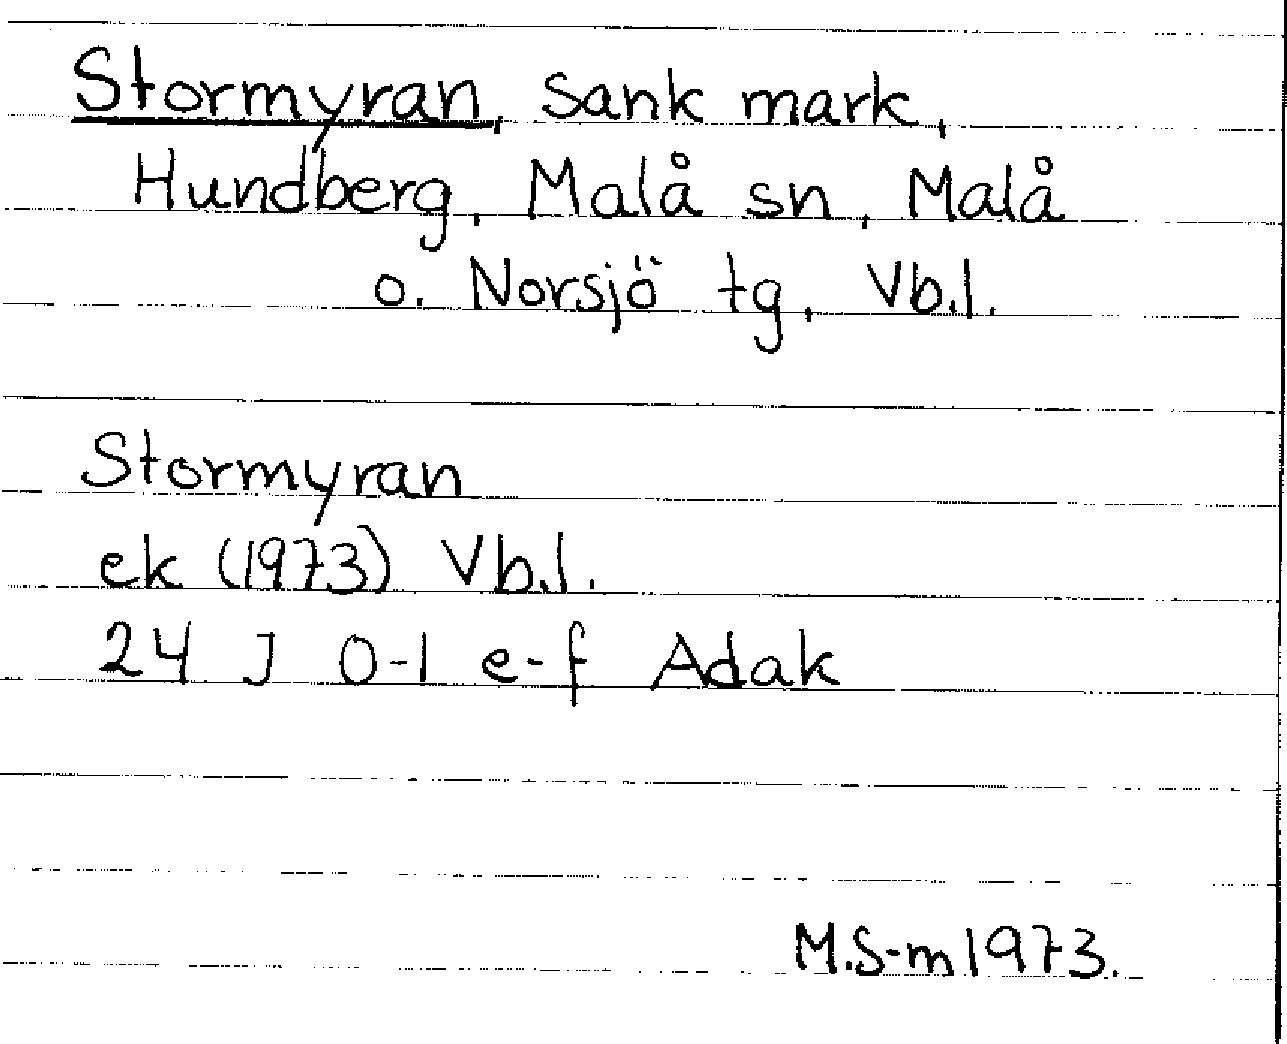 Stormyran, sank mark,
Hundberg, Malå sn, Malå
o. Norsjö tg, Vb.l.
Stormyran
ek (1973) Vb.l.
24 J 0-1 e-f Adak
M.S-m 1973.